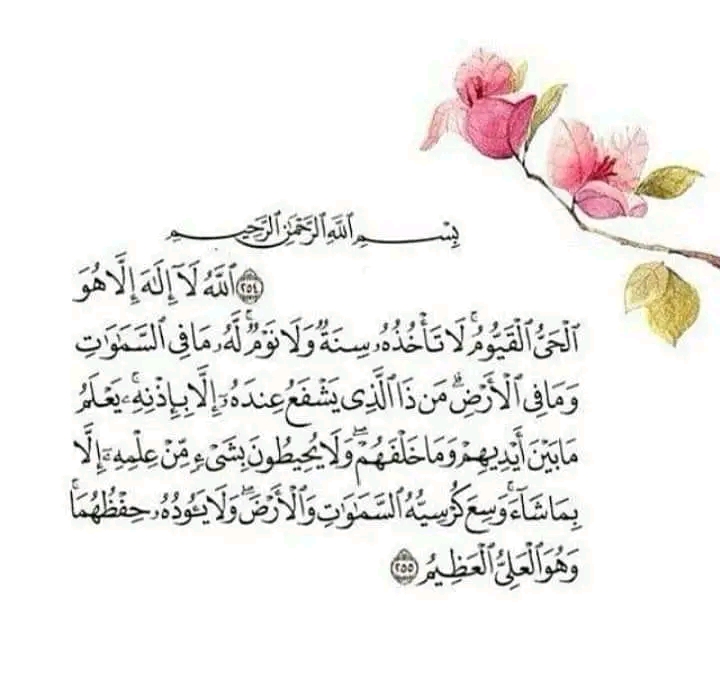 بِسْمِ ٱللَّهِ ٱلرَّحْمَٰنِ ٱلرَّحِيمِ
٢٥٤ ٱللَّهُ لَآ إِلَٰهَ إِلَّا هُوَ
ٱلْحَىُّ ٱلْقَيُّومُ ۚ لَا تَأْخُذُهُۥ سِنَةٌ وَلَا نَوْمٌ ۚ لَّهُۥ مَا فِى ٱلسَّمَٰوَٰتِ
وَمَا فِى ٱلْأَرْضِ ۗ مَن ذَا ٱلَّذِى يَشْفَعُ عِندَهُۥٓ إِلَّا بِإِذْنِهِۦ ۚ يَعْلَمُ
مَا بَيْنَ أَيْدِيهِمْ وَمَا خَلْفَهُمْ ۖ وَلَا يُحِيطُونَ بِشَىْءٍ مِّنْ عِلْمِهِۦٓ إِلَّا
بِمَا شَآءَ ۚ وَسِعَ كُرْسِيُّهُ ٱلسَّمَٰوَٰتِ وَٱلْأَرْضَ ۖ وَلَا يَـُٔودُهُۥ حِفْظُهُمَا ۚ
وَهُوَ ٱلْعَلِىُّ ٱلْعَظِيمُ ٢٥٥